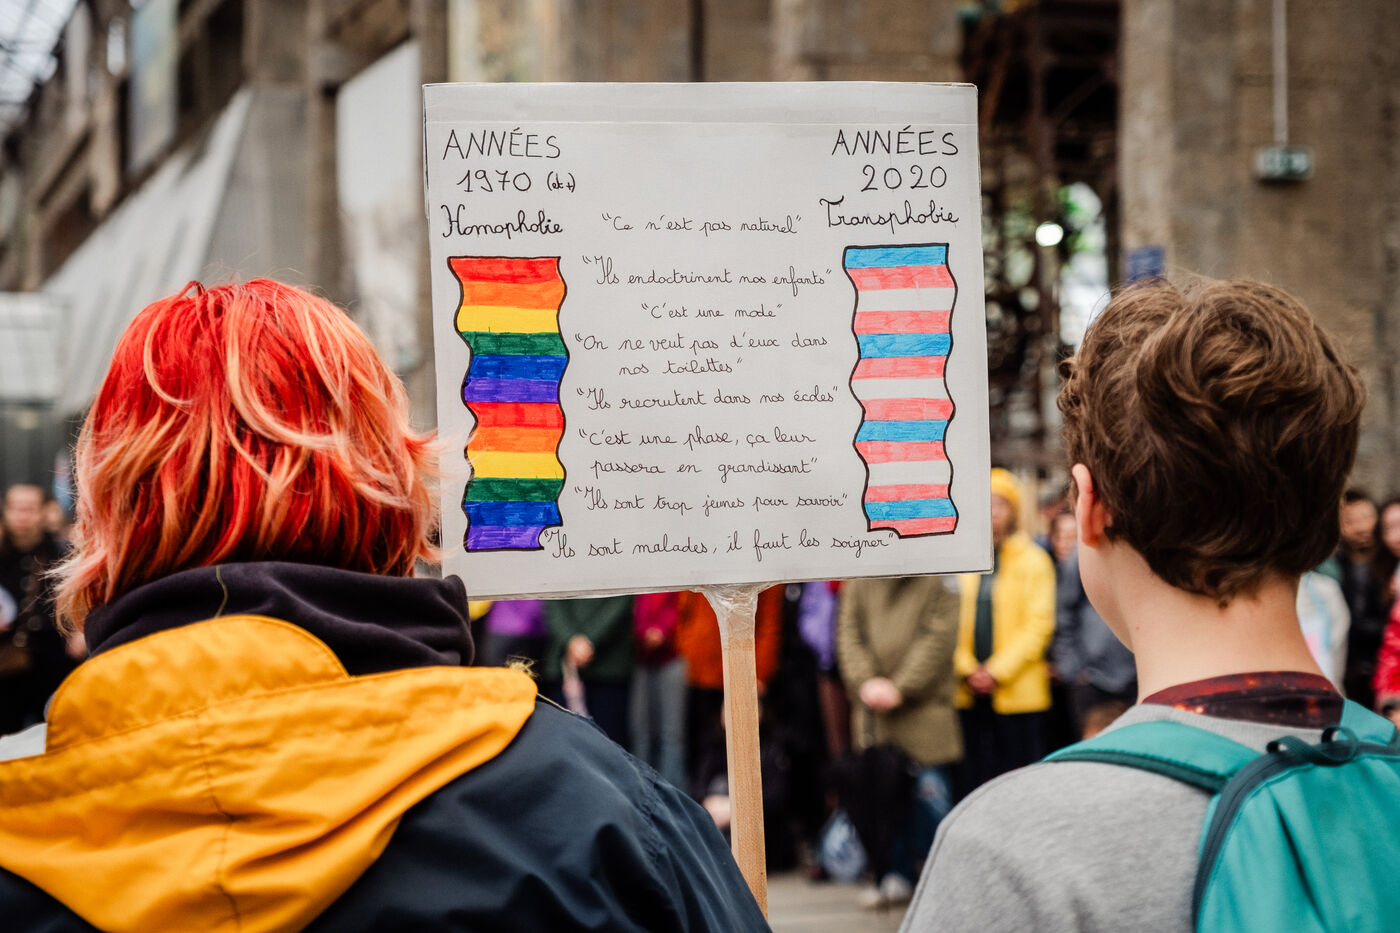 ANNÉES
1970 (et +)
Homophobie
ANNÉES
2020
Transphobie
"Ce n'est pas naturel"
"Ils endoctrinent nos enfants"
"C'est une mode"
"On ne veut pas d'eux dans
nos toilettes"
"Ils recrutent dans nos écoles"
"C'est une phase, ça leur
passera en grandissant"
"Ils sont trop jeunes pour savoir"
"Ils sont malades, il faut les soigner"